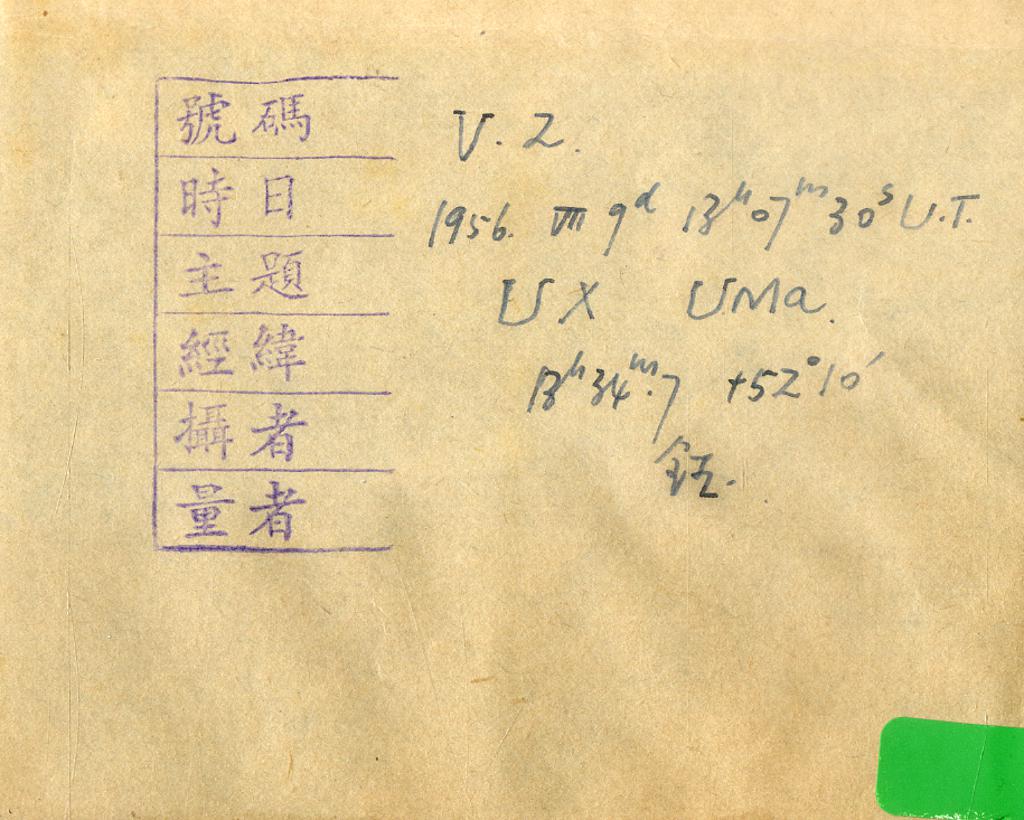 號碼 V. 2.
時日 1956. Ⅷ 9ᵈ 13ʰ07ᵐ30ˢ U.T.
主題 UX UMa.
經緯 13ʰ34ᵐ.7 +52°10′
攝者
量者